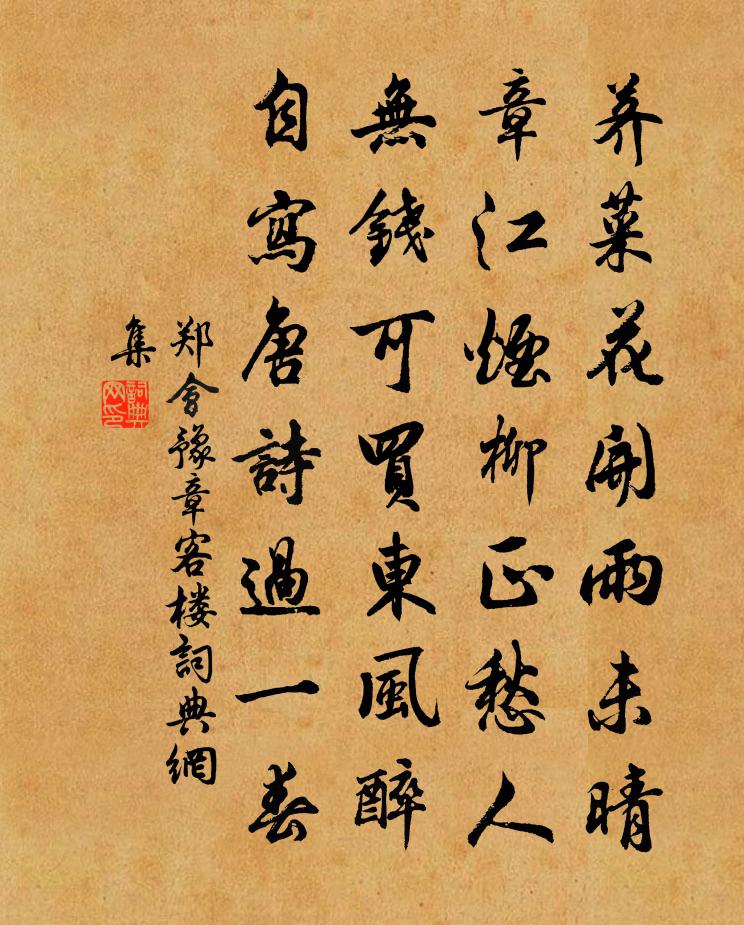 荠菜花開雨未晴
章江煙柳正愁人
無錢可買東風醉
自寫唐詩過一春
郑會豫章客楼詞典網
集
詞典
网印